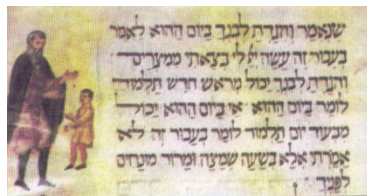 שנאמר והגדת לבנך ביום ההוא לאמר
בעבור זה עשה יי לי בצאתי ממצרים
והגדת לבנך יכול מראש חדש תלמוד
לומר ביום ההוא אי ביום ההוא יכול
מבעוד יום תלמוד לומר בעבור זה לא
אמרתי אלא בשעה שמצה ומרור מונחים
לפניך